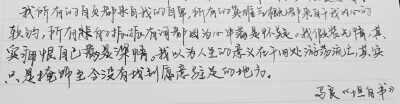 我所有的自负都来自我的自卑，所有的英雄气概都来自于我内心的
软弱，所有的振振有词都因为心中满是怀疑。我假装无情，其
实痛恨自己满是深情。我以为人生的意义在于四处游荡流亡，其实
只是掩饰至今没有找到愿意驻足的地方。
马良《坦白书》